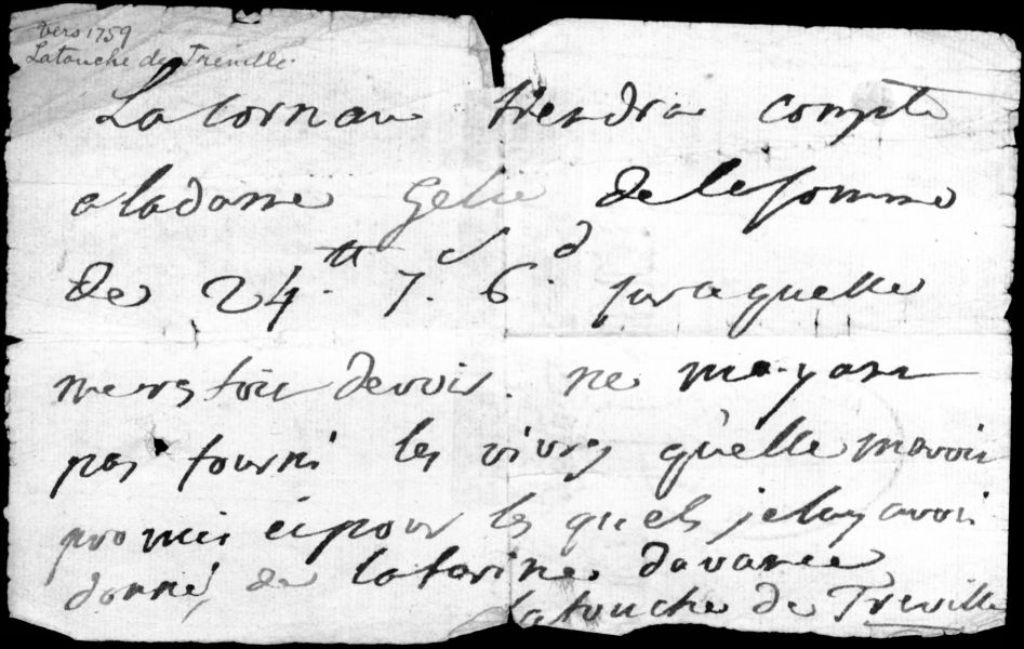 Vers 1759
Latouche de Treville.
La cornau tiendra compte
a la dame Gelié de le somme
de 24.tt 7.s 6.d sur laquelle
me restoit devoir. ne mayant
pas fourni les vivres quelle mavoit
promis et pour les quels je luy avoit
donné, de la farine davance
Latouche de Treville